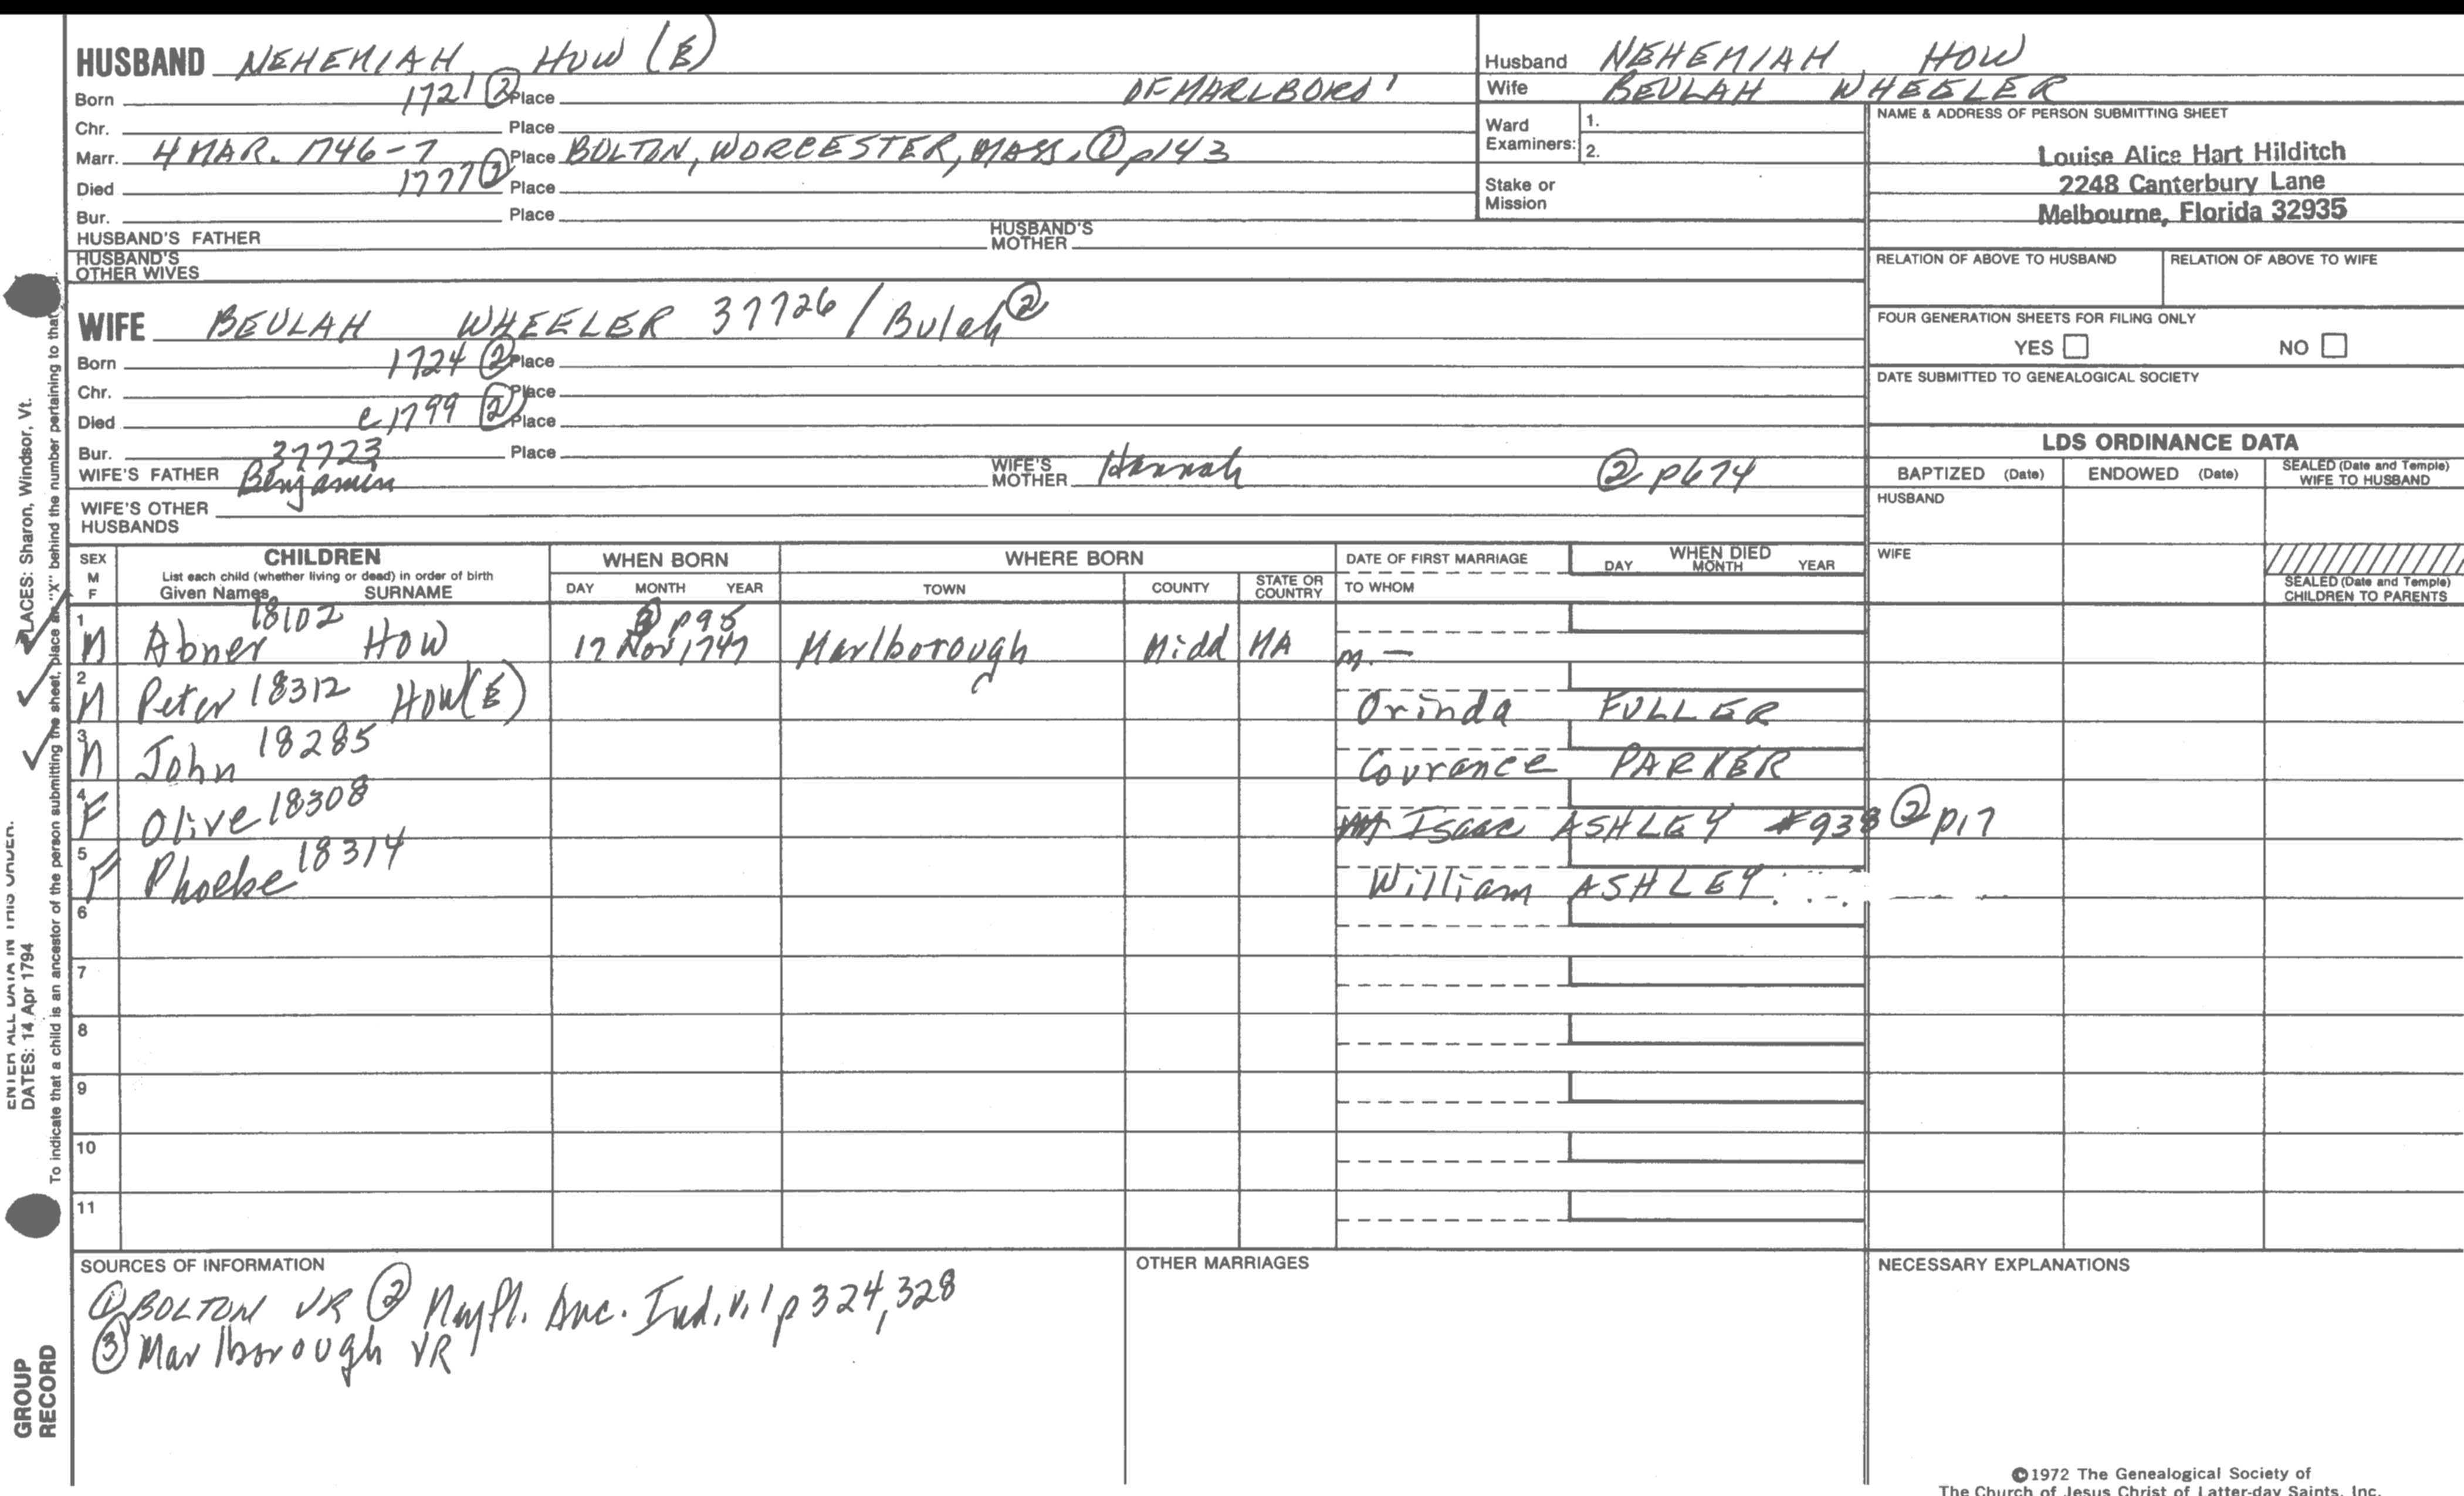 HUSBAND NEHEMIAH HOW (E)
Born 1721 ② Place OF MARLBORO'
Chr. Place
Marr. 4 MAR. 1746-7 Place BOLTON, WORCESTER, MASS. ① p143
Died 1777 ② Place
Bur. Place
HUSBAND'S FATHER HUSBAND'S MOTHER
HUSBAND'S OTHER WIVES
WIFE BEULAH WHEELER 37726 / Bulah ②
Born 1724 ② Place
Chr. Place
Died c 1799 ② Place
Bur. Place
37723
WIFE'S FATHER Benjamin WIFE'S MOTHER Hannah ② p674
WIFE'S OTHER HUSBANDS
Husband NEHEMIAH HOW
Wife BEULAH WHEELER
Ward Examiners: 1.
2.
Stake or Mission
NAME & ADDRESS OF PERSON SUBMITTING SHEET
Louise Alice Hart Hilditch
2248 Canterbury Lane
Melbourne, Florida 32935
RELATION OF ABOVE TO HUSBAND RELATION OF ABOVE TO WIFE
FOUR GENERATION SHEETS FOR FILING ONLY
YES NO
DATE SUBMITTED TO GENEALOGICAL SOCIETY
LDS ORDINANCE DATA
BAPTIZED (Date) ENDOWED (Date) SEALED (Date and Temple) WIFE TO HUSBAND
HUSBAND
WIFE
SEALED (Date and Temple) CHILDREN TO PARENTS
SEX M F CHILDREN WHEN BORN WHERE BORN DATE OF FIRST MARRIAGE WHEN DIED
List each child (whether living or dead) in order of birth
Given Names SURNAME DAY MONTH YEAR TOWN COUNTY STATE OR COUNTRY TO WHOM DAY MONTH YEAR
18102 ③ p95
1 M Abner HOW 17 Nov 1747 Marlborough Midd MA m. —
2 M Peter 18312 HOW(E) Orinda FULLER
3 M John 18285 Courance PARKER
4 F Olive 18308 Isaac ASHLEY #938 ② p17
5 F Phoebe 18314 William ASHLEY
6
7
8
9
10
11
SOURCES OF INFORMATION OTHER MARRIAGES NECESSARY EXPLANATIONS
① BOLTON VR ② Mayfl. Anc. Ind. v. 1 p 324, 328
③ Marlborough VR
©1972 The Genealogical Society of
The Church of Jesus Christ of Latter-day Saints, Inc.
PLACES: Sharon, Windsor, Vt.
ENTER ALL DATA IN THIS ORDER:
DATES: 14 Apr 1794
To indicate that a child is an ancestor of the person submitting the sheet, place an "X" behind the number pertaining to that
GROUP
RECORD